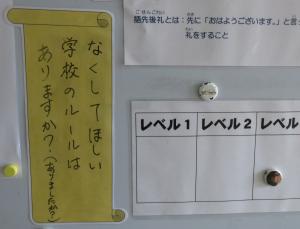 なくしてほしい
学校のルールは
ありますか？（ありましたか？）
語先後礼とは：先に「おはようございます。」と言っ
礼をすること
レベル１
レベル２
レベル